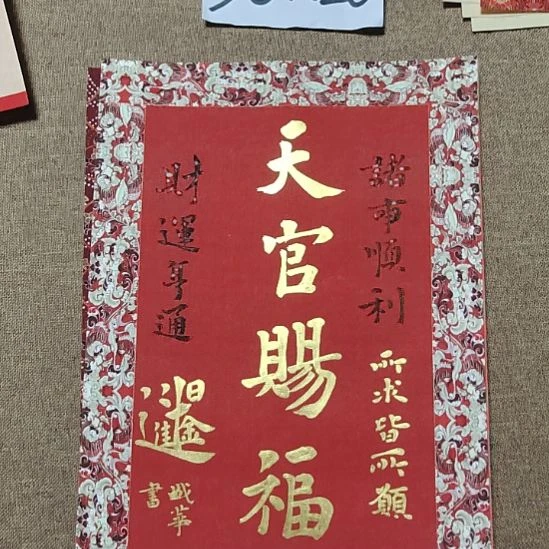 諸市順利
所求皆所願
天官賜福
財運亨通
日進斗金